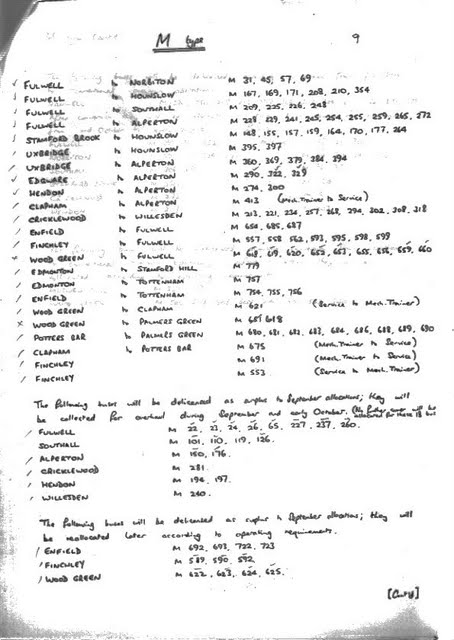 M type 9
✓ FULWELL to NORBITON M 31, 45, 57, 69
✓ FULWELL to HOUNSLOW M 167, 169, 171, 208, 210, 354
✓ FULWELL to SOUTHALL M 209, 225, 226, 248
✓ FULWELL to ALPERTON M 228, 239, 241, 245, 254, 255, 259, 265, 272
✓ STAMFORD BROOK to HOUNSLOW M 148, 155, 157, 159, 164, 170, 177, 264
/ UXBRIDGE to HOUNSLOW M 395, 397
/ UXBRIDGE to ALPERTON M 360, 369, 379, 384, 394
✓ EDGWARE to ALPERTON M 290, 322, 329
✓ HENDON to ALPERTON M 274, 300
/ CLAPHAM to ALPERTON M 413 (Mech. Trainer to Service)
/ CRICKLEWOOD to WILLESDEN M 213, 221, 234, 257, 268, 294, 302, 308, 318
/ ENFIELD to FULWELL M 654, 685, 687
/ FINCHLEY to FULWELL M 557, 558, 562, 593, 595, 598, 599
× WOOD GREEN to FULWELL M 618, 619, 620, 652, 653, 655, 656, 659, 660
/ EDMONTON to STAMFORD HILL M 779
/ EDMONTON to TOTTENHAM M 757
/ ENFIELD to TOTTENHAM M 754, 755, 756
/ WOOD GREEN to CLAPHAM M 621 (Service to Mech. Trainer)
× WOOD GREEN to PALMERS GREEN M 651 618
/ POTTERS BAR to PALMERS GREEN M 680, 681, 682, 683, 684, 686, 688, 689, 690
/ CLAPHAM to POTTERS BAR M 675 (Mech. Trainer to Service)
/ FINCHLEY M 691 (Mech. Trainer to Service)
/ FINCHLEY M 553 (Service to Mech. Trainer)
The following buses will be delicensed as surplus to September allocations; they will
be collected for overhaul during September and early October. (No further cover will be allocated for these 18 buses
/ FULWELL M 22, 23, 24, 26, 65, 227, 237, 260.
SOUTHALL M 101, 110, 119, 126.
/ ALPERTON M 150, 176.
/ CRICKLEWOOD M 281.
/ HENDON M 194, 197.
/ WILLESDEN M 240.
The following buses will be delicensed as surplus to September allocations; they will
be reallocated later according to operating requirements.
/ ENFIELD M 692, 693, 722, 723
/ FINCHLEY M 589, 590, 592
/ WOOD GREEN M 622, 623, 624, 625.